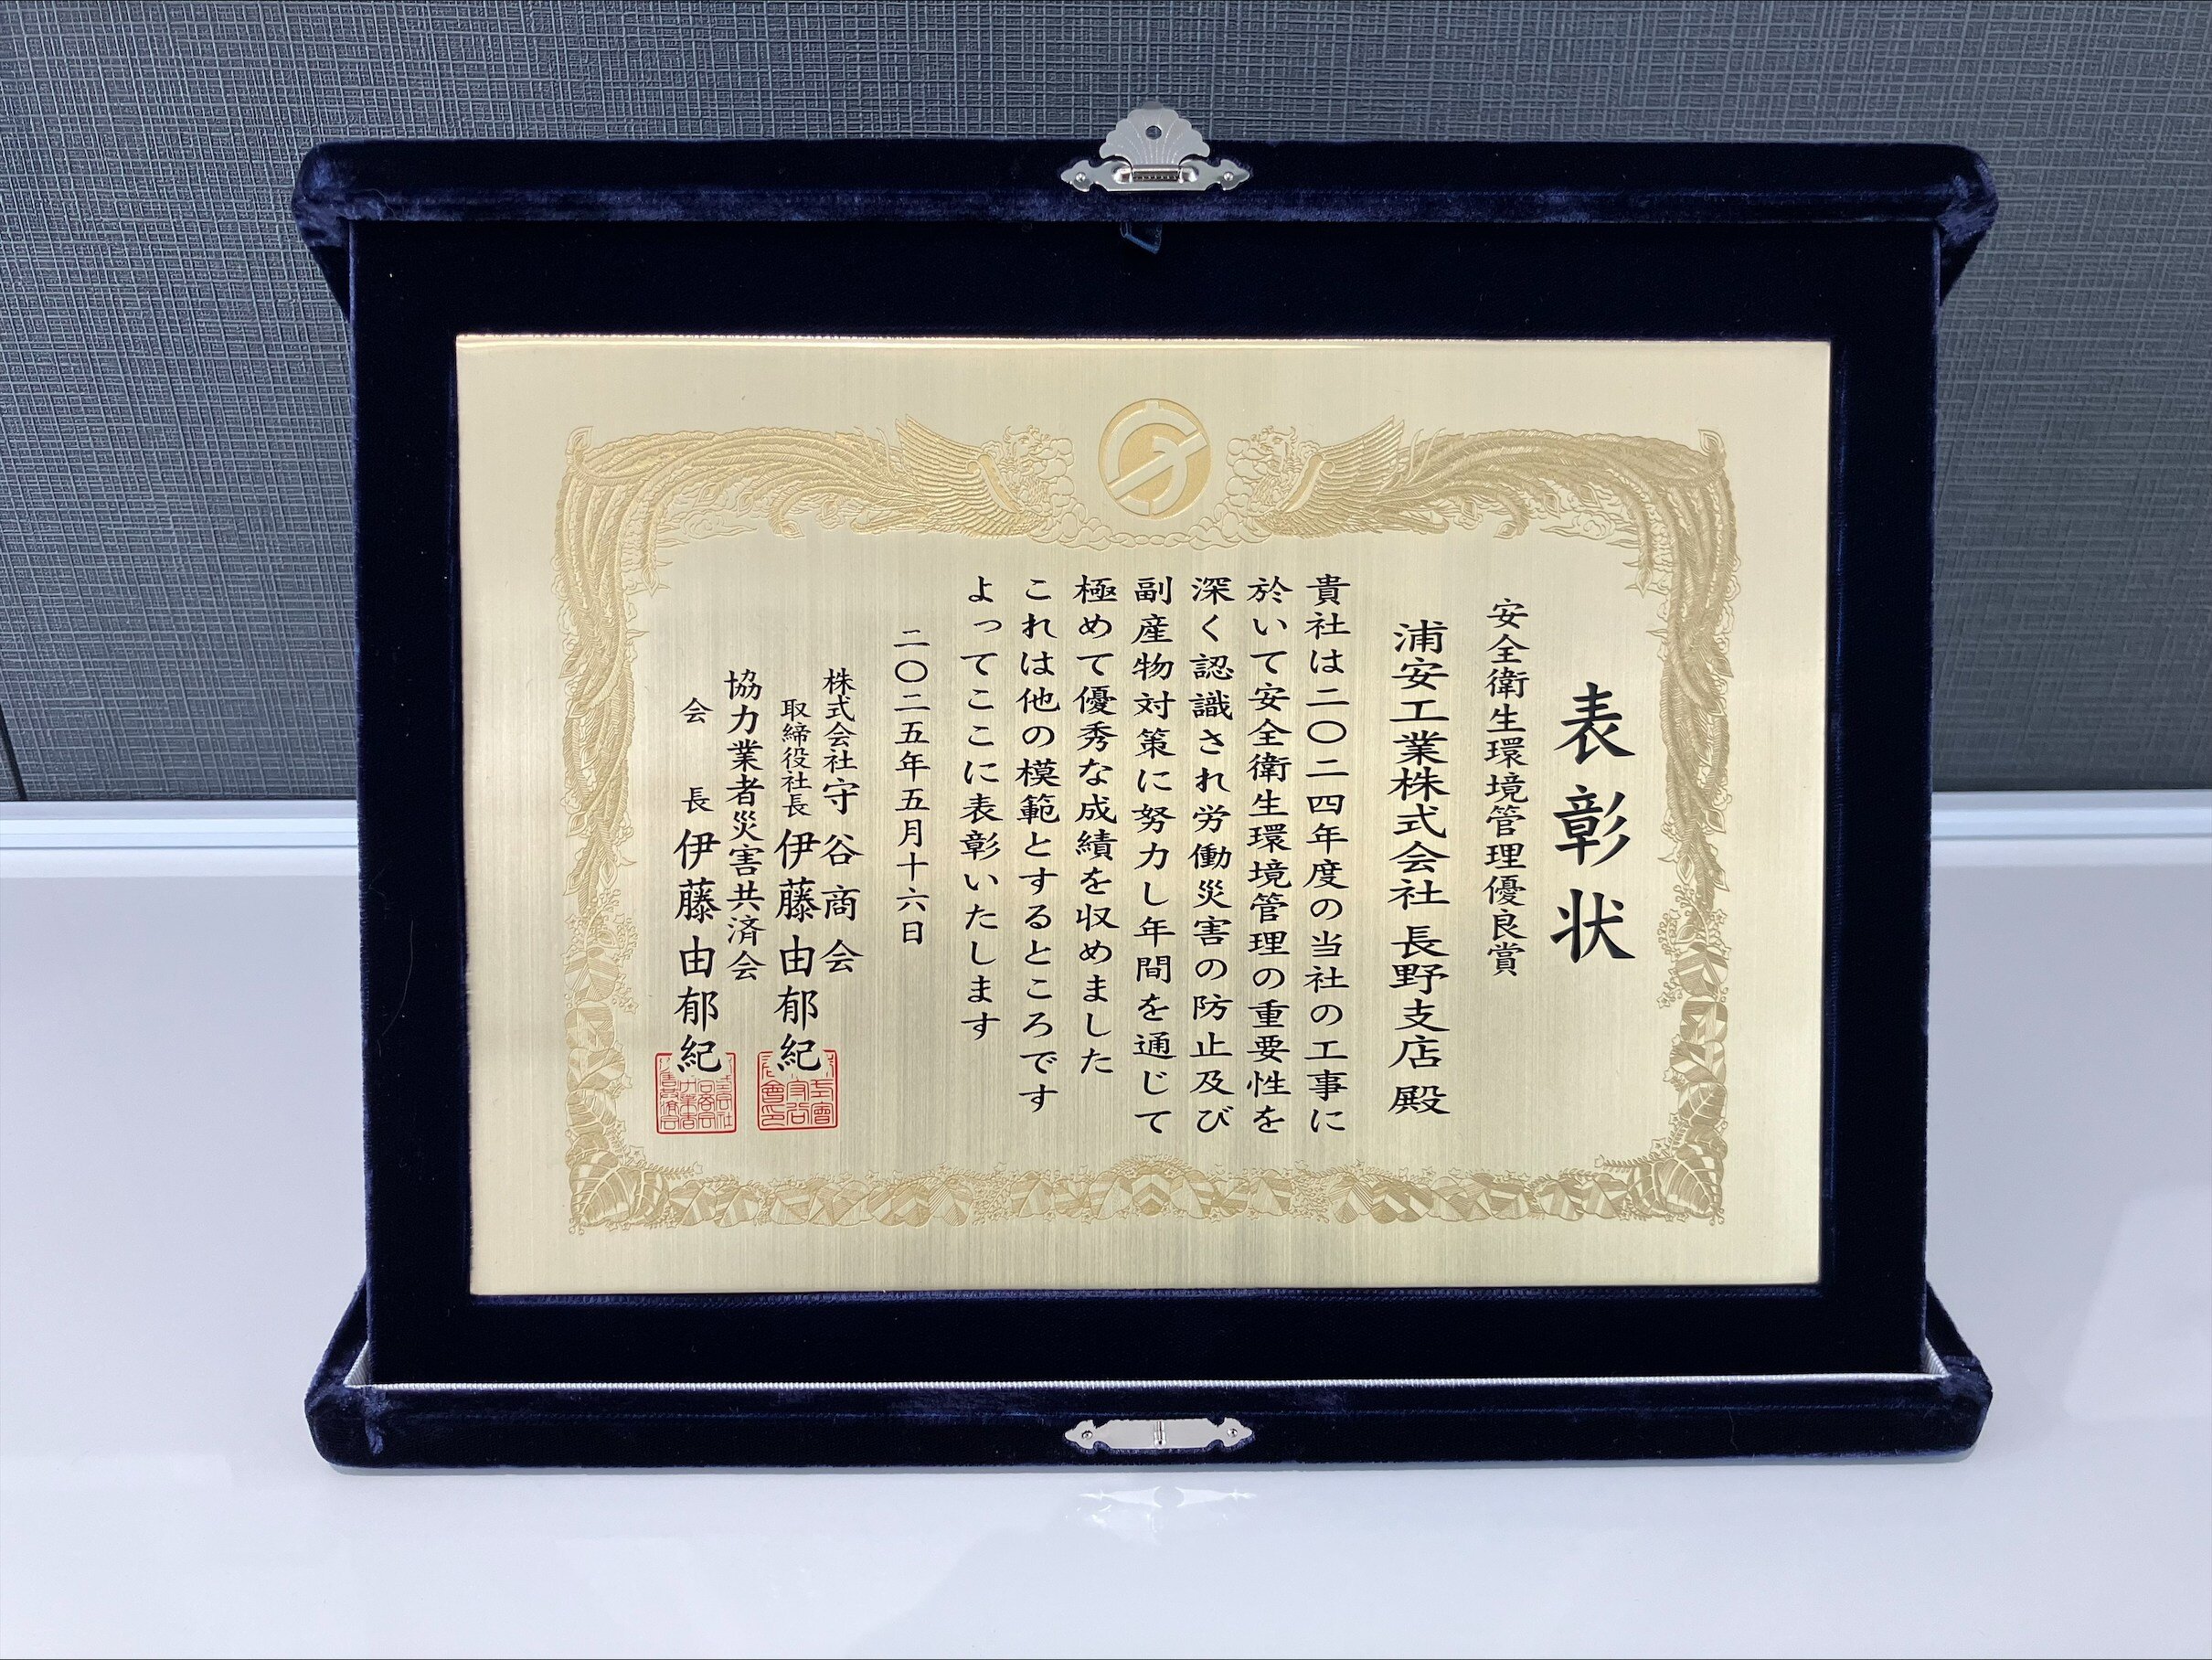 表彰状
安全衛生環境管理優良賞
浦安工業株式会社 長野支店 殿
貴社は二〇二四年度の当社の工事に
於いて安全衛生環境管理の重要性を
深く認識され労働災害の防止及び
副産物対策に努力し年間を通じて
極めて優秀な成績を収めました
これは他の模範とするところです
よってここに表彰いたします
二〇二五年五月十六日
株式会社守谷商会
取締役社長 伊藤由郁紀
協力業者災害共済会
会長 伊藤由郁紀